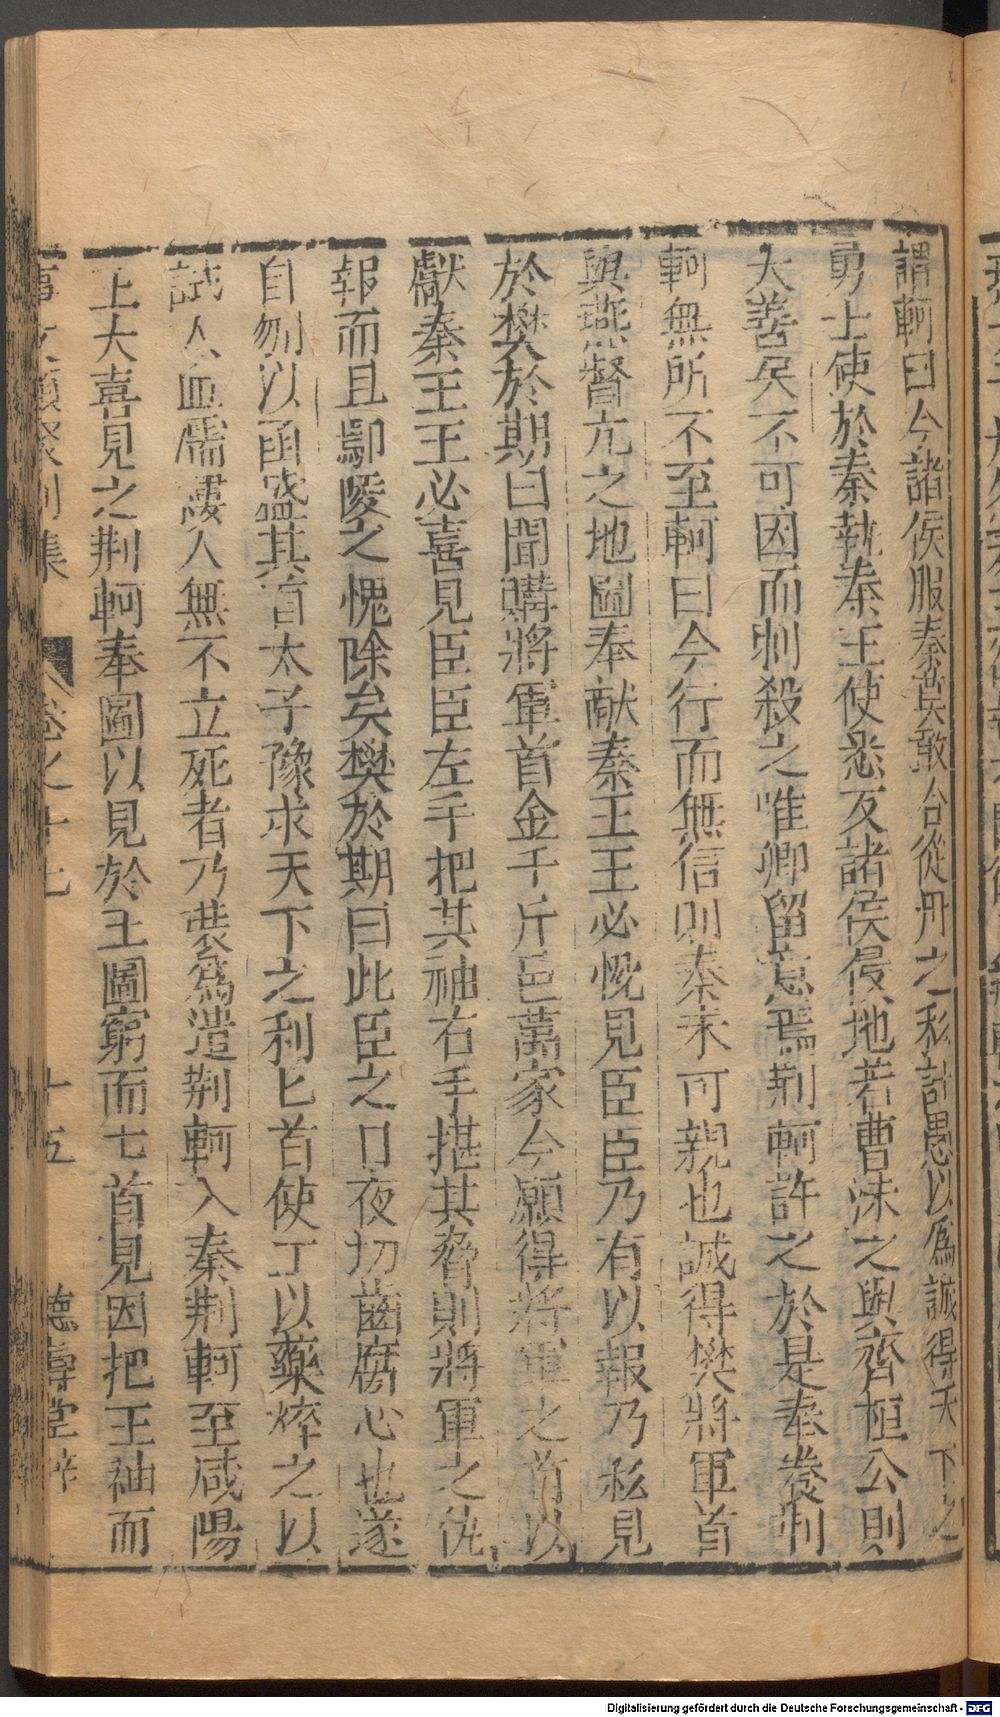 謂軻曰今諸侯服秦莫敢合從丹之私計愚以爲誠得天下之
勇士使於秦執秦王使悉反諸侯侵地若曹沬之與齊桓公則
大善矣不可因而刺殺之唯卿留意焉荆軻許之於是奉養荆
軻無所不至軻曰今行而無信則秦未可親也誠得樊將軍首
與燕督亢之地圖奉献秦王王必悅見臣臣乃有以報乃私見
於樊於期曰聞購將軍首金千斤邑萬家今願得將軍之首以
獻秦王王必喜見臣臣左手把其袖右手揕其脅則將軍之仇
報而且鄢陵之愧除矣樊於期曰此臣之日夜切齒腐心也遂
自刎以函盛其首太子豫求天下之利匕首使工以藥焠之以
試人血濡縷人無不立死者乃裝爲遣荆軻入秦荆軻至咸陽
上大喜見之荆軻奉圖以見於王圖窮而匕首見因把王袖而
事文類聚別集 卷之十七 十五 德壽堂梓
Digitalisierung gefördert durch die Deutsche Forschungsgemeinschaft - DFG